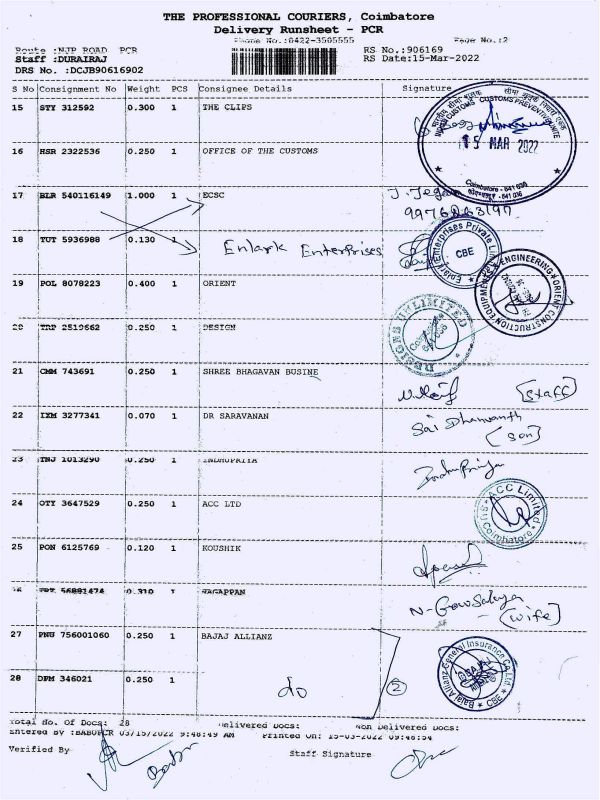 THE PROFESSIONAL COURIERS, Coimbatore
Delivery Runsheet - PCR
Phone No.:0422-3505555 Page No.:2
Route :NJP ROAD PCR RS No.:906169
Staff :DURAIRAJ RS Date:15-Mar-2022
DRS No. :DCJB90616902
S No Consignment No Weight PCS Consignee Details Signature
15 STY 312592 0.300 1 THE CLIPS
15 MAR 2022
Coimbatore - 641 018
16 HSR 2322536 0.250 1 OFFICE OF THE CUSTOMS
17 BLR 540116149 1.000 1 ECSC
18 TUT 5936988 0.130 1 Enlark Enterprises
CBE
19 POL 8078223 0.400 1 ORIENT
ORIENT CONSTRUCTION EQUIPMENT & ENGINEERING
20 TRP 2519662 0.250 1 DESIGN
DESIGNS UNLIMITED
21 CMM 743691 0.250 1 SHREE BHAGAVAN BUSINE
[Staff]
22 IXM 3277341 0.070 1 DR SARAVANAN
Sai Dhanvanth
(son)
23 TNJ 1013290 0.250 1 INDHUPRIYA
Indhu Priya
24 OTY 3647529 0.250 1 ACC LTD
ACC Limited
Coimbatore
25 PON 6125769 0.120 1 KOUSHIK
26 56881474 0.310 1 NAGAPPAN
N-Gowsalya
(wife)
27 PNU 756001060 0.250 1 BAJAJ ALLIANZ
Bajaj Allianz General Insurance Co. Ltd.
CBE
28 DPM 346021 0.250 1 do 2
Total No. Of Docs: 28 Delivered Docs: Non Delivered Docs:
Entered By :BABUPCR 03/15/2022 9:48:49 AM Printed On: 15-03-2022 09:48:54
Verified By Staff Signature